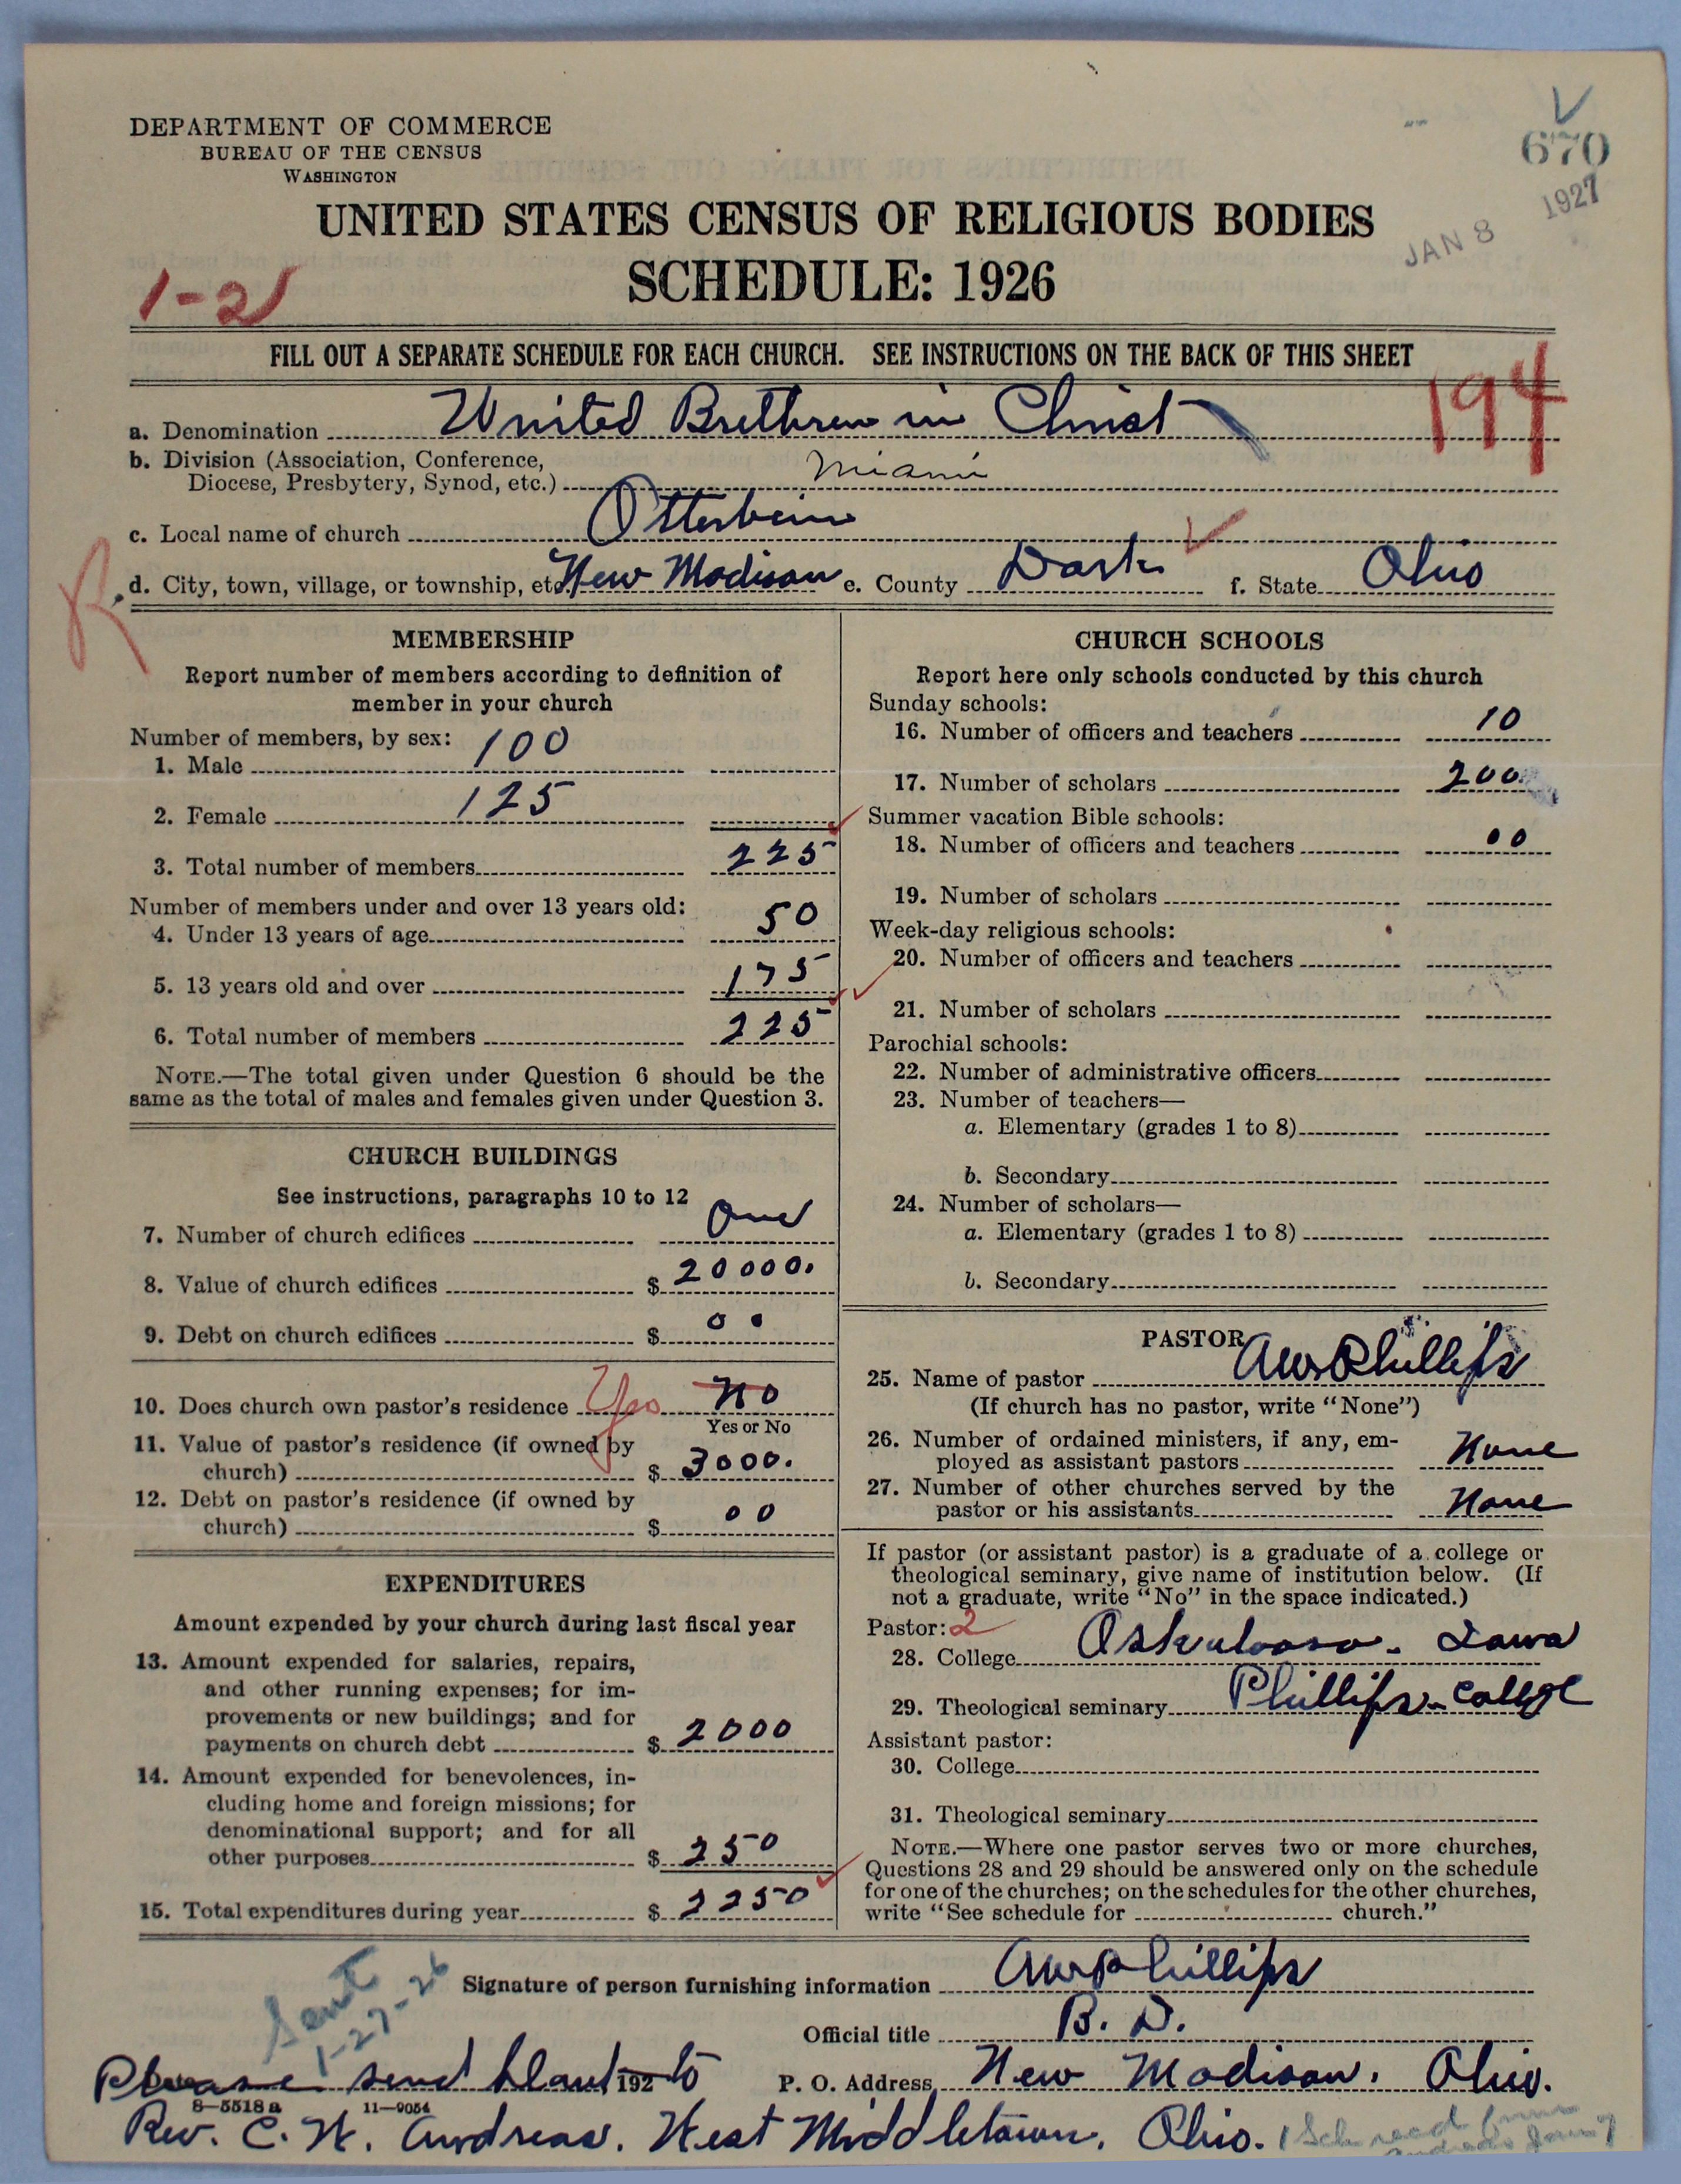 DEPARTMENT OF COMMERCE
BUREAU OF THE CENSUS
WASHINGTON
670
JAN 8 1927
UNITED STATES CENSUS OF RELIGIOUS BODIES
SCHEDULE: 1926
1-21
FILL OUT A SEPARATE SCHEDULE FOR EACH CHURCH. SEE INSTRUCTIONS ON THE BACK OF THIS SHEET
194
a. Denomination United Brethren in Christ
b. Division (Association, Conference,
Diocese, Presbytery, Synod, etc.) Miami
c. Local name of church Otterbein
R
d. City, town, village, or township, etc. New Madison e. County Dark f. State Ohio
MEMBERSHIP
Report number of members according to definition of
member in your church
Number of members, by sex:
1. Male 100
2. Female 125
3. Total number of members 225
Number of members under and over 13 years old:
4. Under 13 years of age 50
5. 13 years old and over 175
6. Total number of members 225
NOTE.—The total given under Question 6 should be the
same as the total of males and females given under Question 3.
CHURCH BUILDINGS
See instructions, paragraphs 10 to 12
7. Number of church edifices One
8. Value of church edifices $ 20000.
9. Debt on church edifices $ 00
10. Does church own pastor's residence Yes No
Yes or No
11. Value of pastor's residence (if owned by
church) $ 3000.
12. Debt on pastor's residence (if owned by
church) $ 00
EXPENDITURES
Amount expended by your church during last fiscal year
13. Amount expended for salaries, repairs,
and other running expenses; for im-
provements or new buildings; and for
payments on church debt $ 2000
14. Amount expended for benevolences, in-
cluding home and foreign missions; for
denominational support; and for all
other purposes $ 250
15. Total expenditures during year $ 2250
CHURCH SCHOOLS
Report here only schools conducted by this church
Sunday schools:
16. Number of officers and teachers 10
17. Number of scholars 200
Summer vacation Bible schools:
18. Number of officers and teachers 00
19. Number of scholars
Week-day religious schools:
20. Number of officers and teachers
21. Number of scholars
Parochial schools:
22. Number of administrative officers
23. Number of teachers—
a. Elementary (grades 1 to 8)
b. Secondary
24. Number of scholars—
a. Elementary (grades 1 to 8)
b. Secondary
PASTOR
25. Name of pastor AW Phillips
(If church has no pastor, write "None")
26. Number of ordained ministers, if any, em-
ployed as assistant pastors None
27. Number of other churches served by the
pastor or his assistants None
If pastor (or assistant pastor) is a graduate of a college or
theological seminary, give name of institution below. (If
not a graduate, write "No" in the space indicated.)
Pastor: 2
28. College Oskaloosa - Iowa
29. Theological seminary Phillips - College
Assistant pastor:
30. College
31. Theological seminary
NOTE.—Where one pastor serves two or more churches,
Questions 28 and 29 should be answered only on the schedule
for one of the churches; on the schedules for the other churches,
write "See schedule for church."
Sent
1-27-26
Signature of person furnishing information AW Phillips
Official title B. D.
Please send blank 192 to P. O. Address New Madison. Ohio.
8-5518a 11-9054
Rev. C. W. Andreas. West Middletown, Ohio.